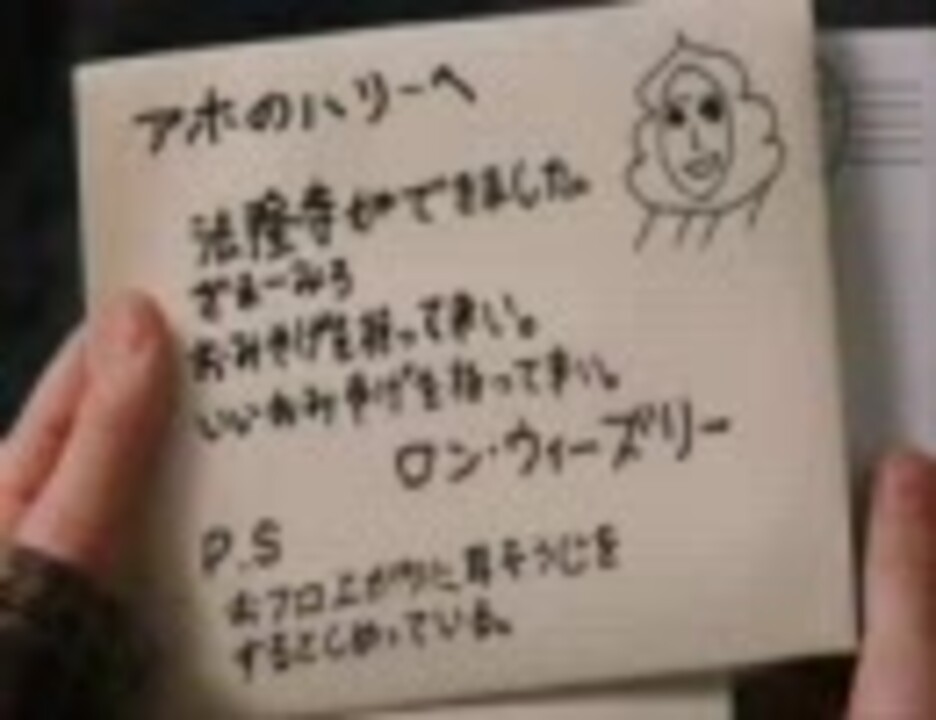 アホのハリーへ
法隆寺ができました。
ざまーみろ
おみやげを持って来い。
いいおみやげを持って来い。
ロン・ウィーズリー
P.S
おフロ上がりに耳そうじを
するとしめっている。